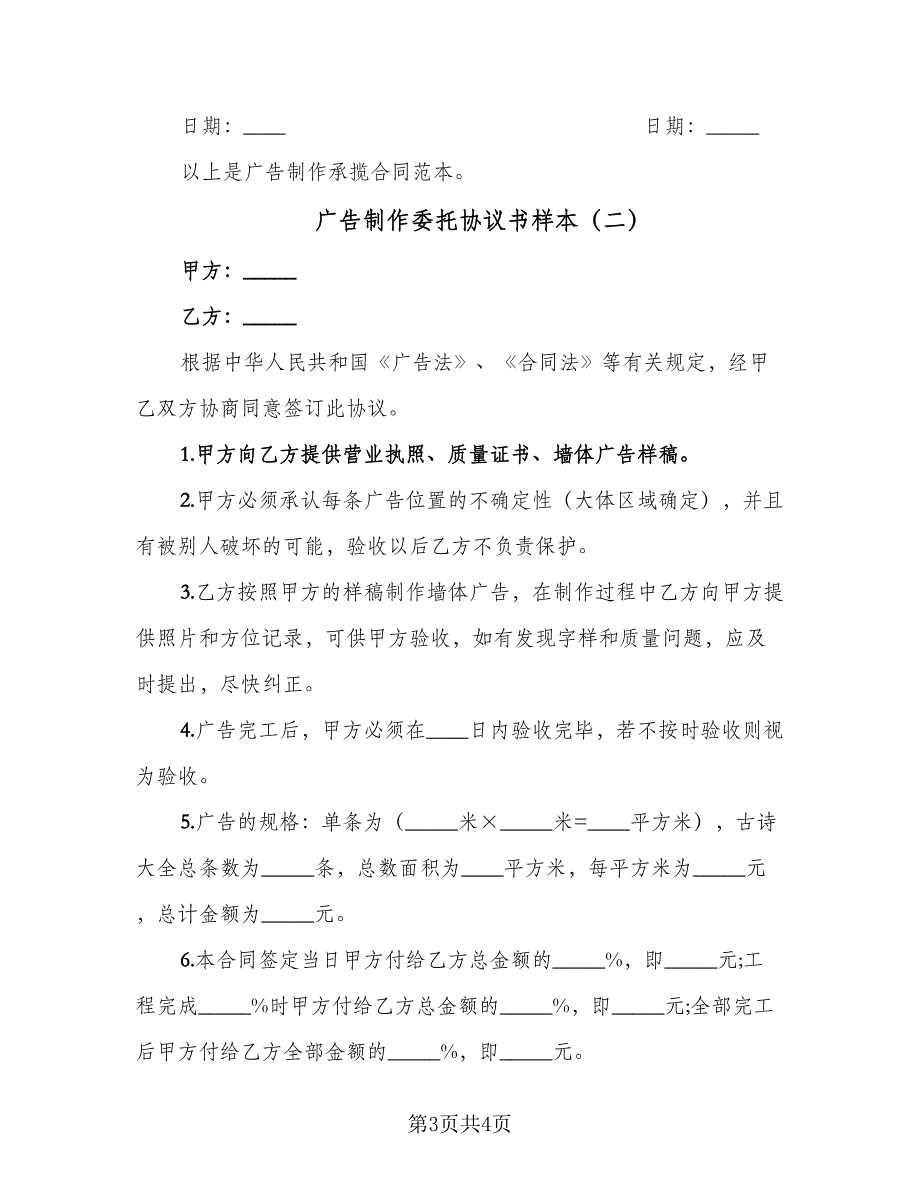 日期：____ 日期：_____
以上是广告制作承揽合同范本。
广告制作委托协议书样本（二）
甲方：_____
乙方：_____
根据中华人民共和国《广告法》、《合同法》等有关规定，经甲
乙双方协商同意签订此协议。
1.甲方向乙方提供营业执照、质量证书、墙体广告样稿。
2.甲方必须承认每条广告位置的不确定性（大体区域确定），并且
有被别人破坏的可能，验收以后乙方不负责保护。
3.乙方按照甲方的样稿制作墙体广告，在制作过程中乙方向甲方提
供照片和方位记录，可供甲方验收，如有发现字样和质量问题，应及
时提出，尽快纠正。
4.广告完工后，甲方必须在____日内验收完毕，若不按时验收则视
为验收。
5.广告的规格：单条为（_____米×_____米=____平方米），古诗
大全总条数为_____条，总数面积为____平方米，每平方米为_____元
，总计金额为_____元。
6.本合同签定当日甲方付给乙方总金额的_____%，即_____元;工
程完成_____%时甲方付给乙方总金额的_____%，即_____元;全部完工
后甲方付给乙方全部金额的_____%，即_____元。
第3页共4页